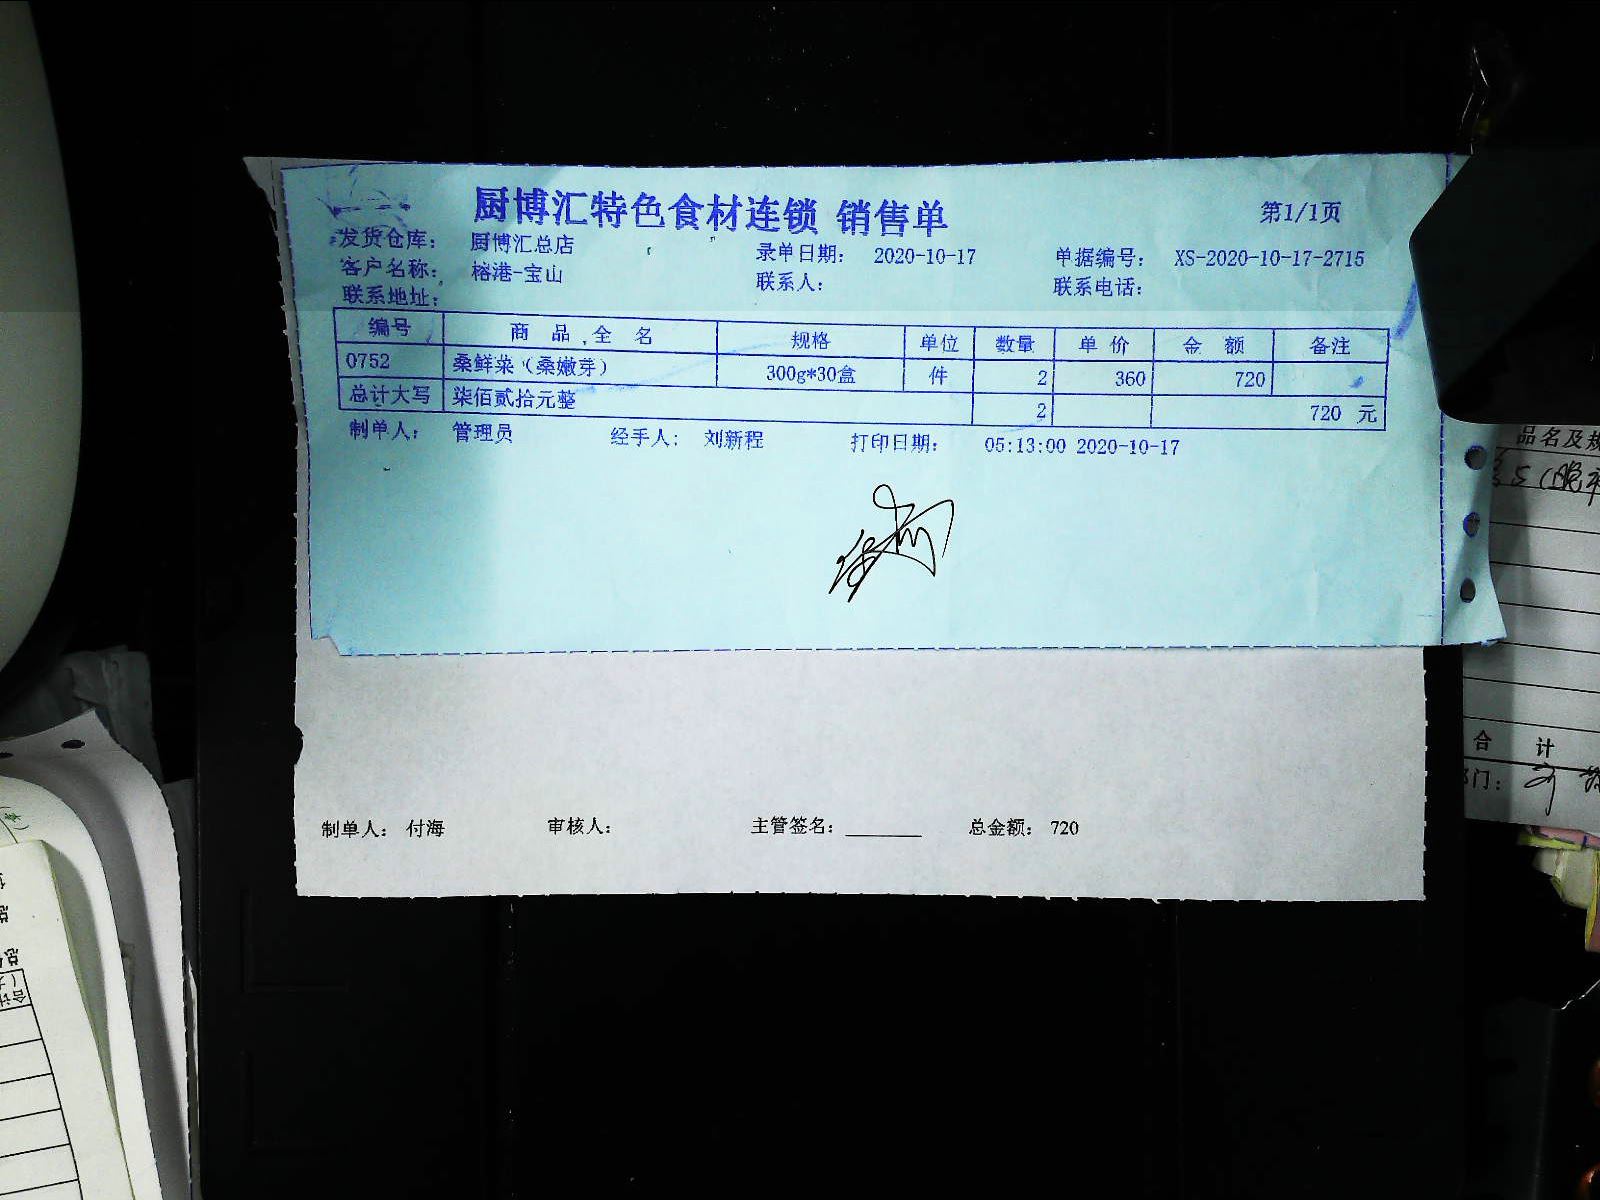 厨博汇特色食材连锁 销售单
第1/1页
发货仓库： 厨博汇总店 录单日期： 2020-10-17 单据编号： XS-2020-10-17-2715
客户名称： 榕港-宝山 联系人： 联系电话：
联系地址：
编号 商品全名 规格 单位 数量 单价 金额 备注
0752 桑鲜菜（桑嫩芽） 300g*30盒 件 2 360 720
总计大写 柒佰贰拾元整 2 720 元
制单人： 管理员 经手人： 刘新程 打印日期： 05:13:00 2020-10-17
制单人： 付海 审核人： 主管签名： 总金额： 720
品名及规
合 计
部门：